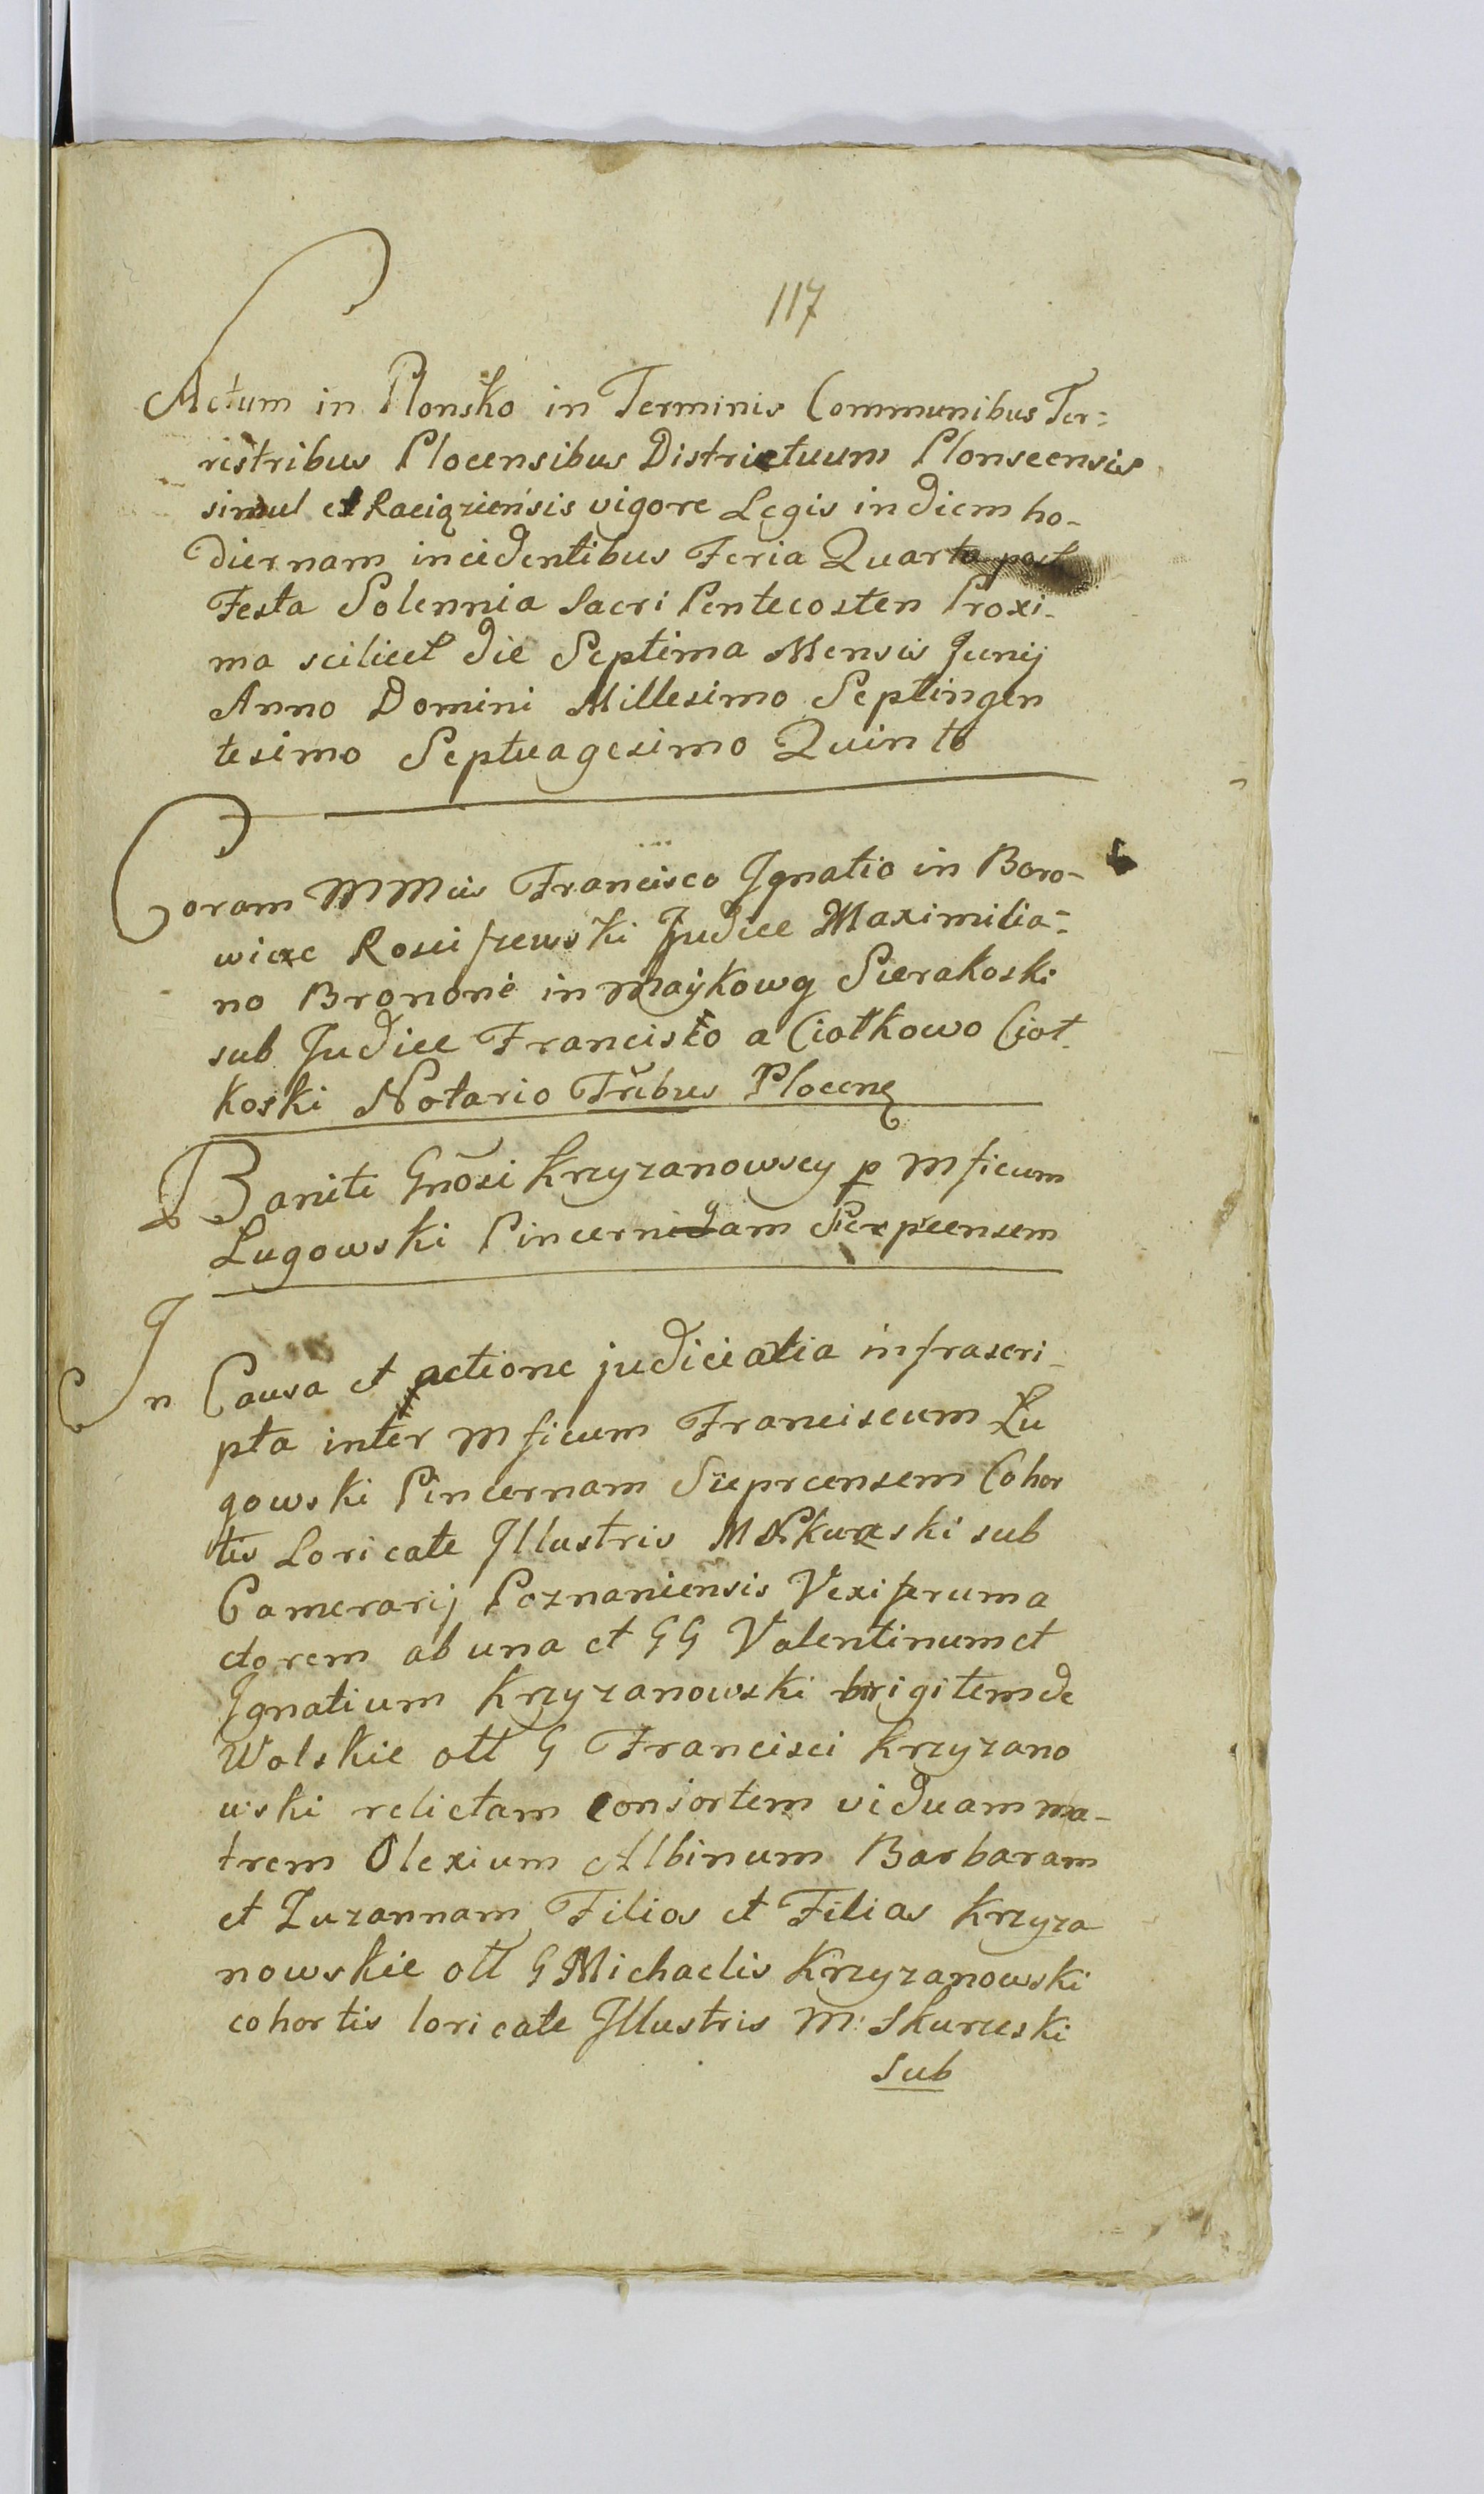 117
Actum in Płonsko in Terminis Communibus Ter=
ristribus Plocensibus Districtuum Plonscensis
simul et Raciąziensis vigore Legis in diem ho-
diernam incidentibus Feria Quarta post
Festa Solennia Sacri Pentecosten Proxi-
ma scilicet die Septima Mensis Junij
Anno Domini Millesimo Septingen
tesimo Septuagesimo Quinto
Coram MMcis Francisco Ignatio in Boro-
wice Rosciszewski Judice Maximilia=
no Bronone in Maykowg Sierakoski
sub Judice Francisco a Ciołkowo Cioł-
koski Notario Tribus Plocen
Baniti Gnosi Krzyzanowscy p Mficum
Lugowski Pincernam Sierpcensem
In Causa et actione judiciatia infrascri-
pta inter Mficum Franciscum Łu
gowski Pincernam Sieprcensem Cohor
tis Loricate Illustris M Skurzeski sub
Camerarij Poznaniensis Vexiferum a
ctorem ab una et GG Valentinum et
Ignatium Krzyzanowski brigitem de
Wolskie olt G Francisci Krzyzano
wski relictam consortem viduam ma-
trem Olexium Albinum Barbaram
et Zuzannam Filios et Filias Krzyza
nowskie olt G Michaelis Krzyzanowski
cohortis loricate Illustris M: Skurzeski
sub